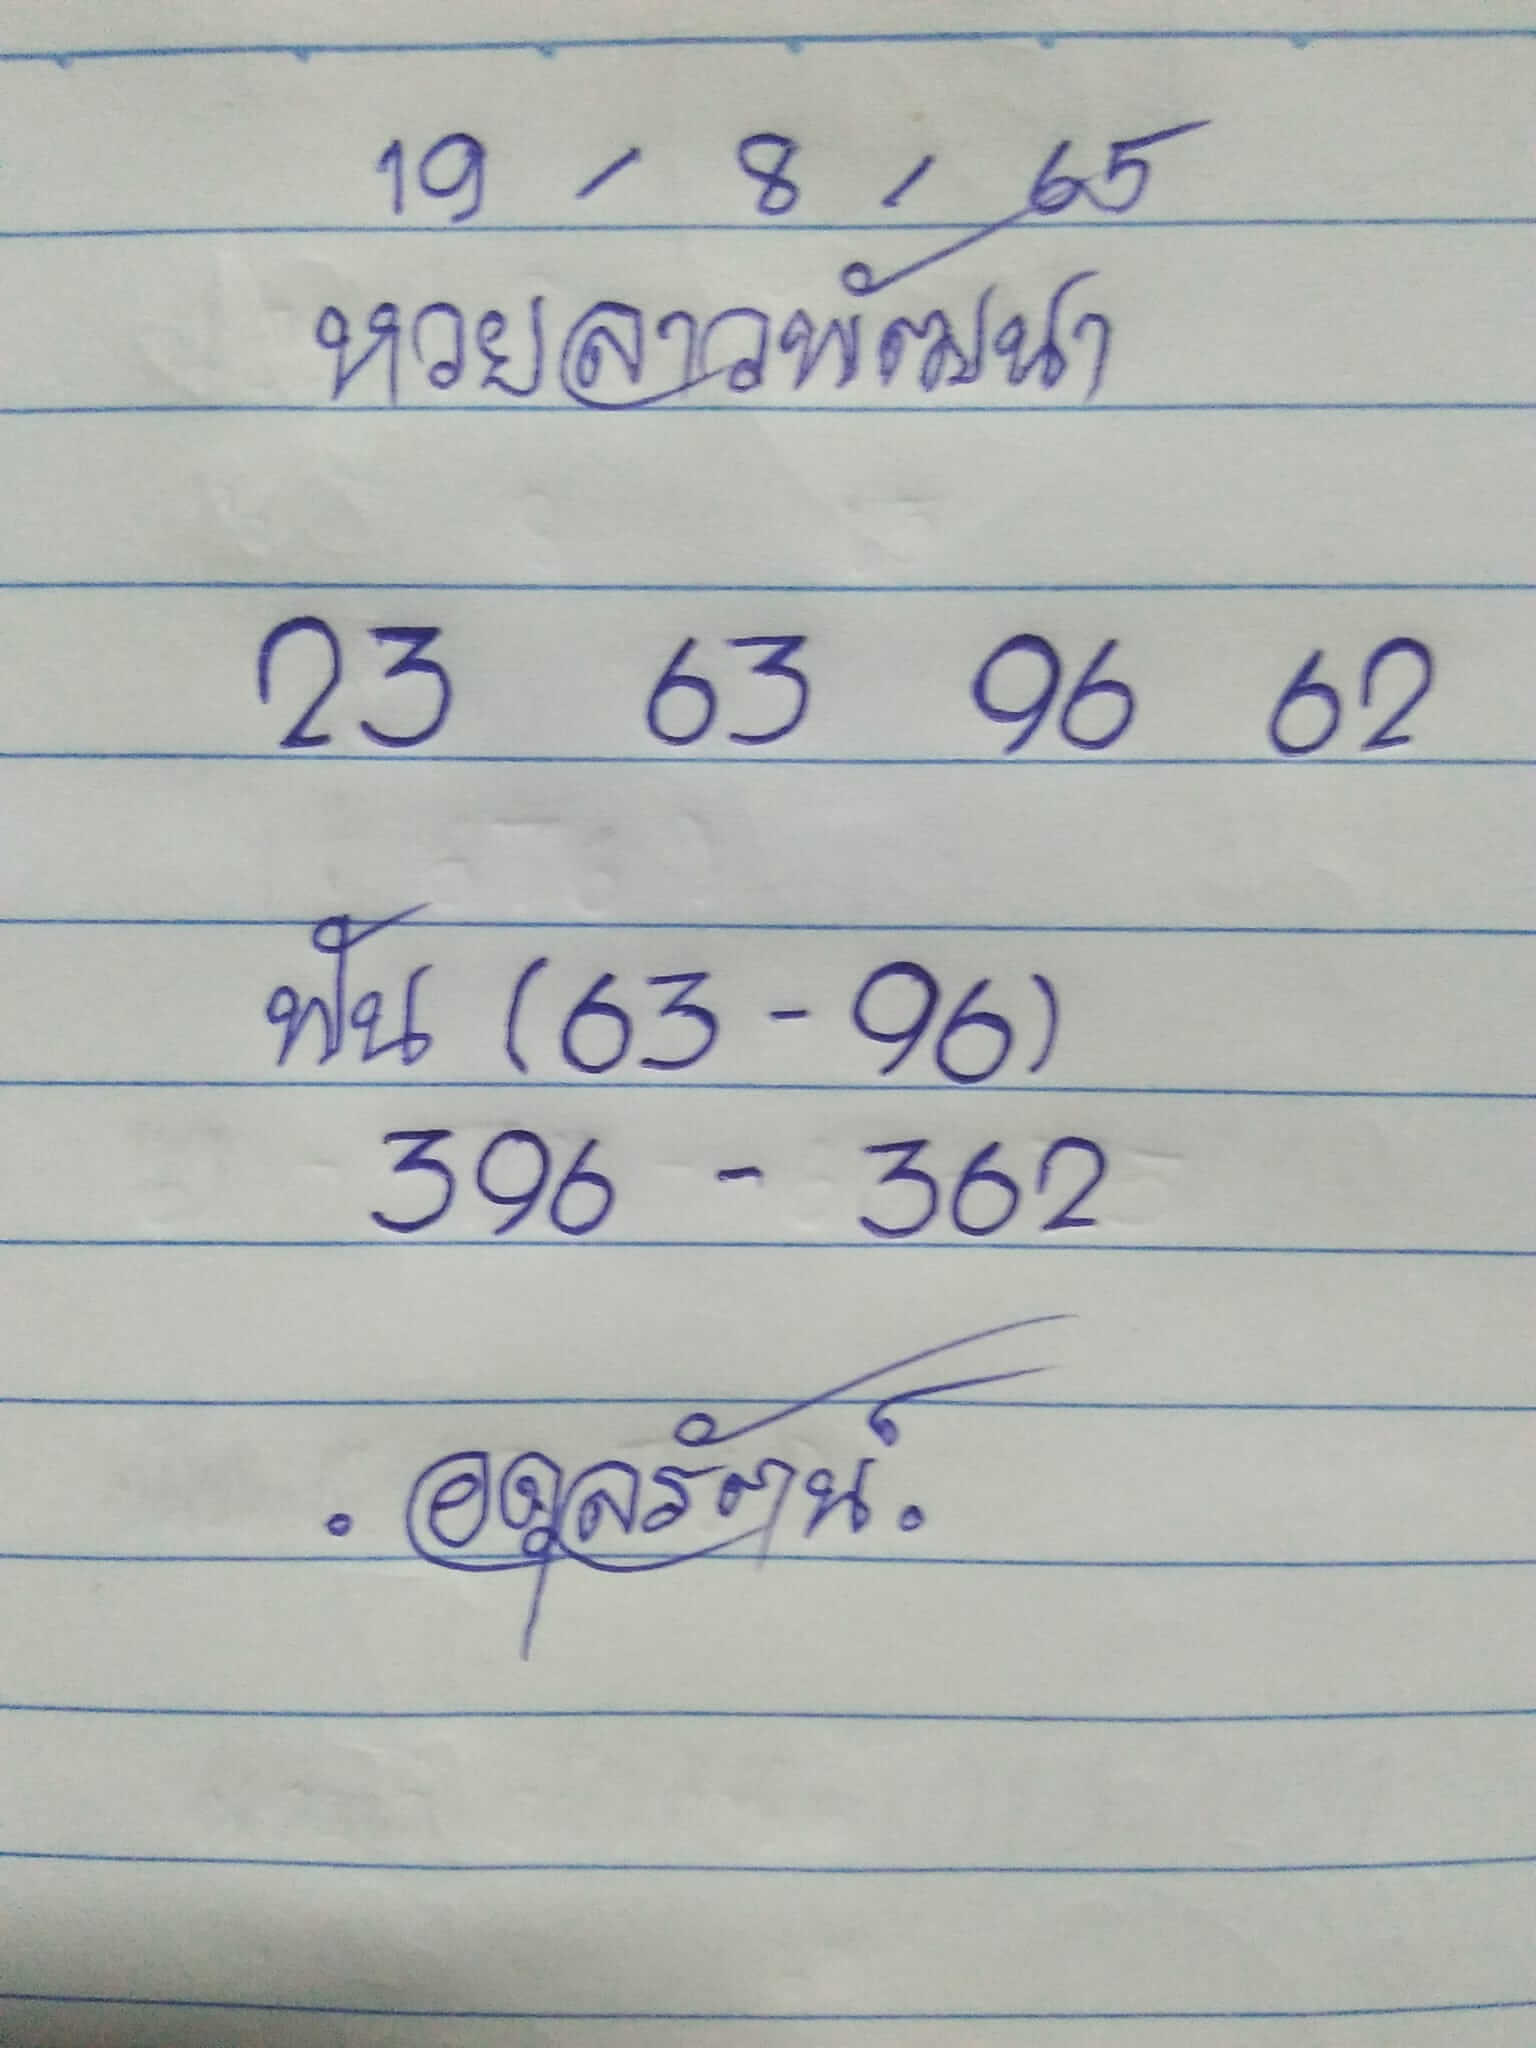 19 / 8 / 65
หวยลาวพัฒนา
23 63 96 62
ฟัน (63 - 96)
396 - 362
. อดุลรัตน์.